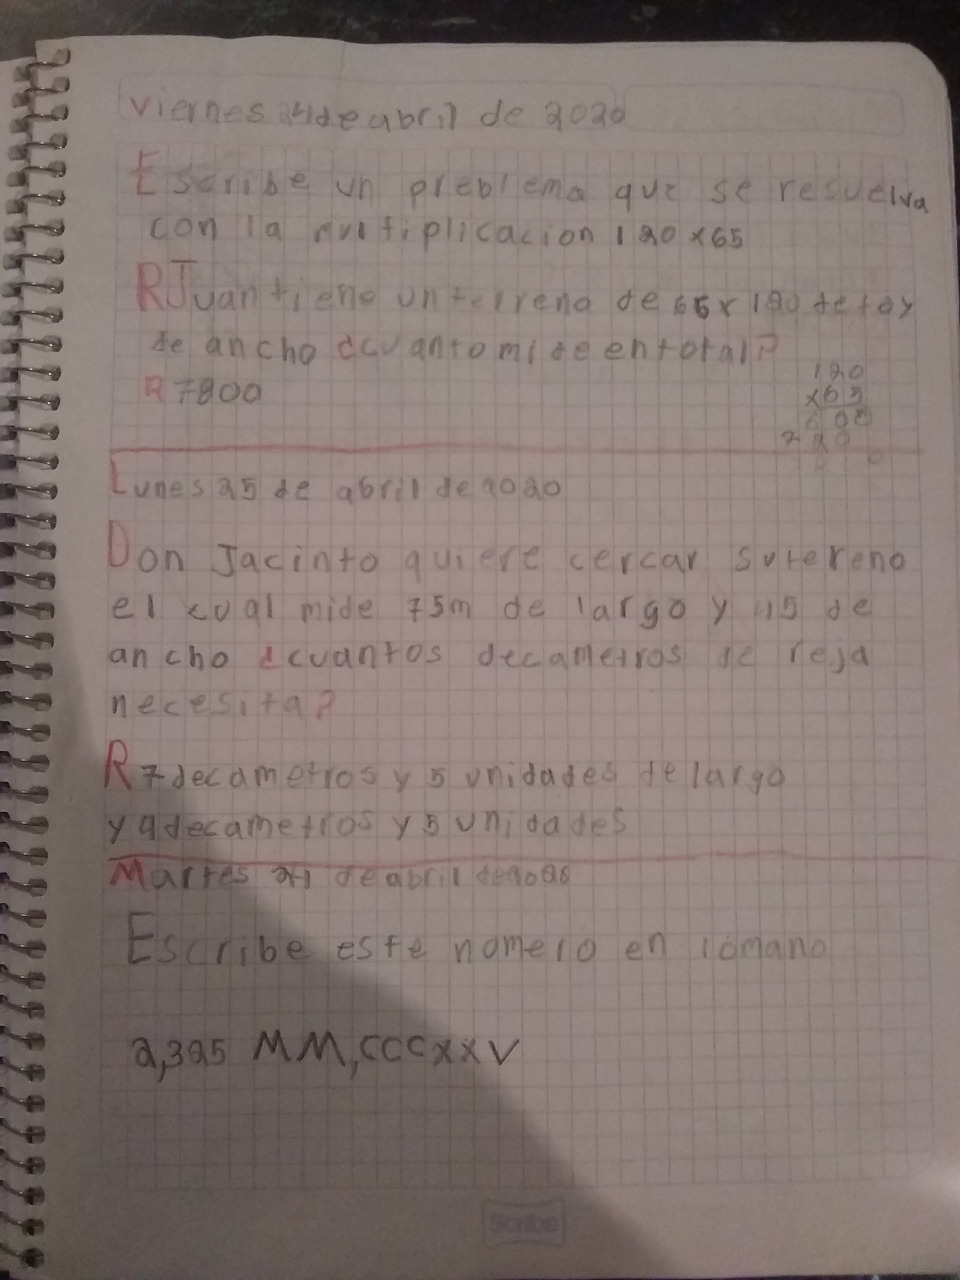 viernes 24 de abril de 2020
Escribe un preblema que se resuelva
con la multiplicacion 120 x65
R Juan tiene un terreno de 65x120 de to y
de ancho ¿cuanto mide en total?
R 7800
120
x65
600
Lunes 25 de abril de 2020
Don Jacinto quiere cercar su tereno
el cual mide 75m de largo y 45 de
ancho ¿cuantos decametros de reja
necesita?
R 7 decametros y 5 unidades de largo
y 4 decametros y 5 unidades
Martes de abril de 2020
Escribe este nomero en romano
2,325 MM,CCCXXV
Scribe